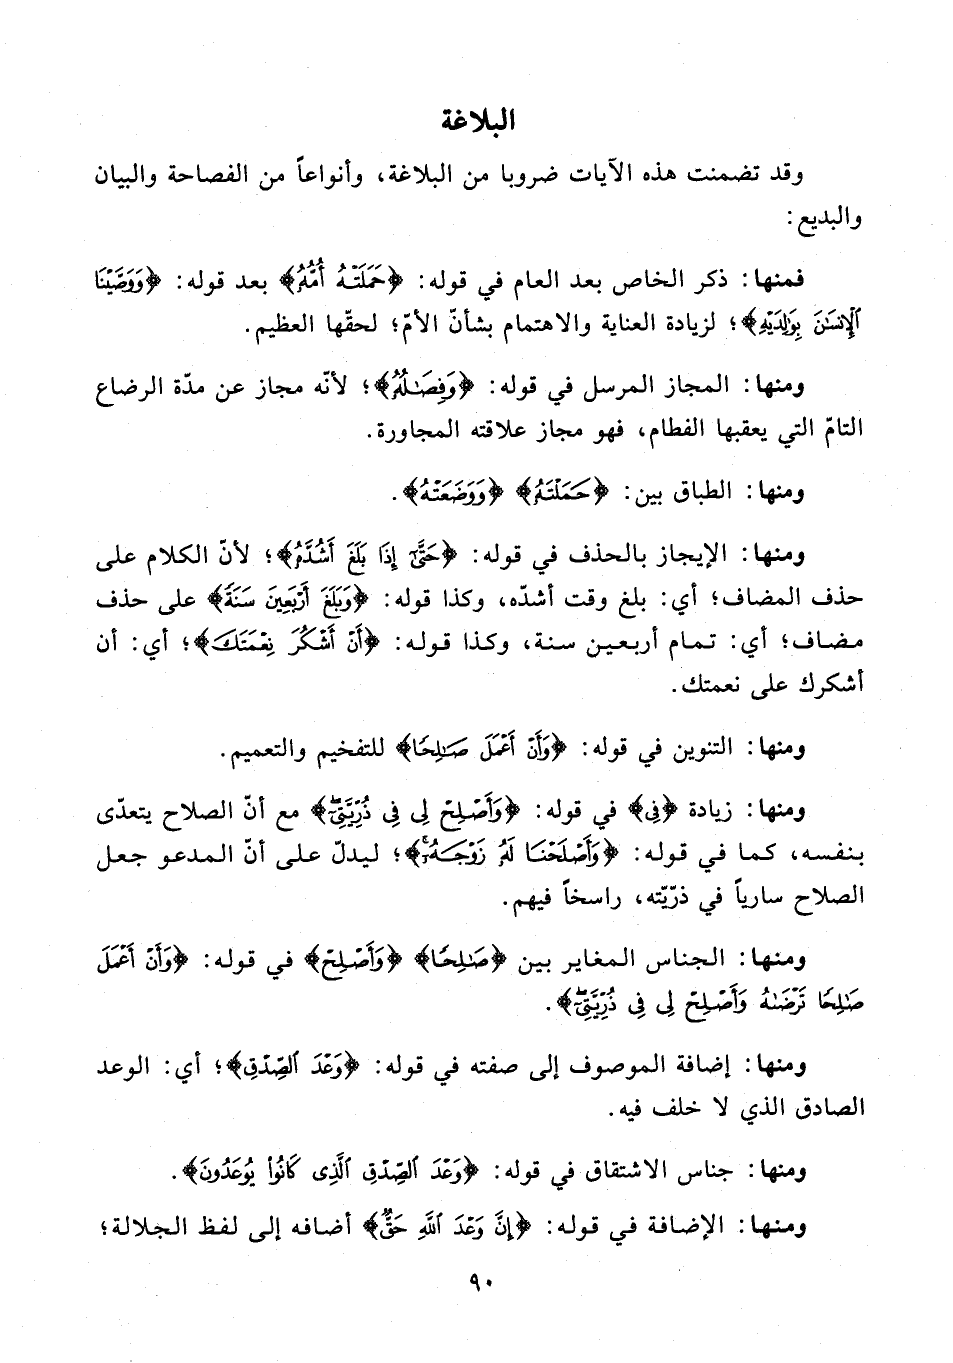 البلاغة
وقد تضمنت هذه الآيات ضروبا من البلاغة، وأنواعاً من الفصاحة والبيان
والبديع:
فمنها: ذكر الخاص بعد العام في قوله: ﴿حَمَلَتْهُ أُمُّهُ﴾ بعد قوله: ﴿وَوَصَّيْنَا
ٱلْإِنسَٰنَ بِوَٰلِدَيْهِ﴾؛ لزيادة العناية والاهتمام بشأنّ الأمّ؛ لحقّها العظيم.
ومنها: المجاز المرسل في قوله: ﴿وَفِصَٰلُهُ﴾؛ لأنّه مجاز عن مدّة الرضاع
التامّ التي يعقبها الفطام، فهو مجاز علاقته المجاورة.
ومنها: الطباق بين: ﴿حَمَلَتْهُ﴾ ﴿وَوَضَعَتْهُ﴾.
ومنها: الإيجاز بالحذف في قوله: ﴿حَتَّىٰٓ إِذَا بَلَغَ أَشُدَّهُ﴾؛ لأنّ الكلام على
حذف المضاف؛ أي: بلغ وقت أشدّه، وكذا قوله: ﴿وَبَلَغَ أَرْبَعِينَ سَنَةً﴾ على حذف
مضاف؛ أي: تمام أربعين سنة، وكذا قوله: ﴿أَنْ أَشْكُرَ نِعْمَتَكَ﴾؛ أي: أن
أشكرك على نعمتك.
ومنها: التنوين في قوله: ﴿وَأَنْ أَعْمَلَ صَٰلِحًا﴾ للتفخيم والتعميم.
ومنها: زيادة ﴿فِى﴾ في قوله: ﴿وَأَصْلِحْ لِى فِى ذُرِّيَّتِىٓ﴾ مع أنّ الصلاح يتعدّى
بنفسه، كما في قوله: ﴿وَأَصْلَحْنَا لَهُ زَوْجَهُۥٓ﴾؛ ليدلّ على أنّ المدعو جعل
الصلاح سارياً في ذرّيّته، راسخاً فيهم.
ومنها: الجناس المغاير بين ﴿صَٰلِحًا﴾ ﴿وَأَصْلِحْ﴾ في قوله: ﴿وَأَنْ أَعْمَلَ
صَٰلِحًا تَرْضَىٰهُ وَأَصْلِحْ لِى فِى ذُرِّيَّتِىٓ﴾.
ومنها: إضافة الموصوف إلى صفته في قوله: ﴿وَعْدَ ٱلصِّدْقِ﴾؛ أي: الوعد
الصادق الذي لا خلف فيه.
ومنها: جناس الاشتقاق في قوله: ﴿وَعْدَ ٱلصِّدْقِ ٱلَّذِى كَانُوا۟ يُوعَدُونَ﴾.
ومنها: الإضافة في قوله: ﴿إِنَّ وَعْدَ ٱللَّهِ حَقٌّ﴾ أضافه إلى لفظ الجلالة؛
٩٠